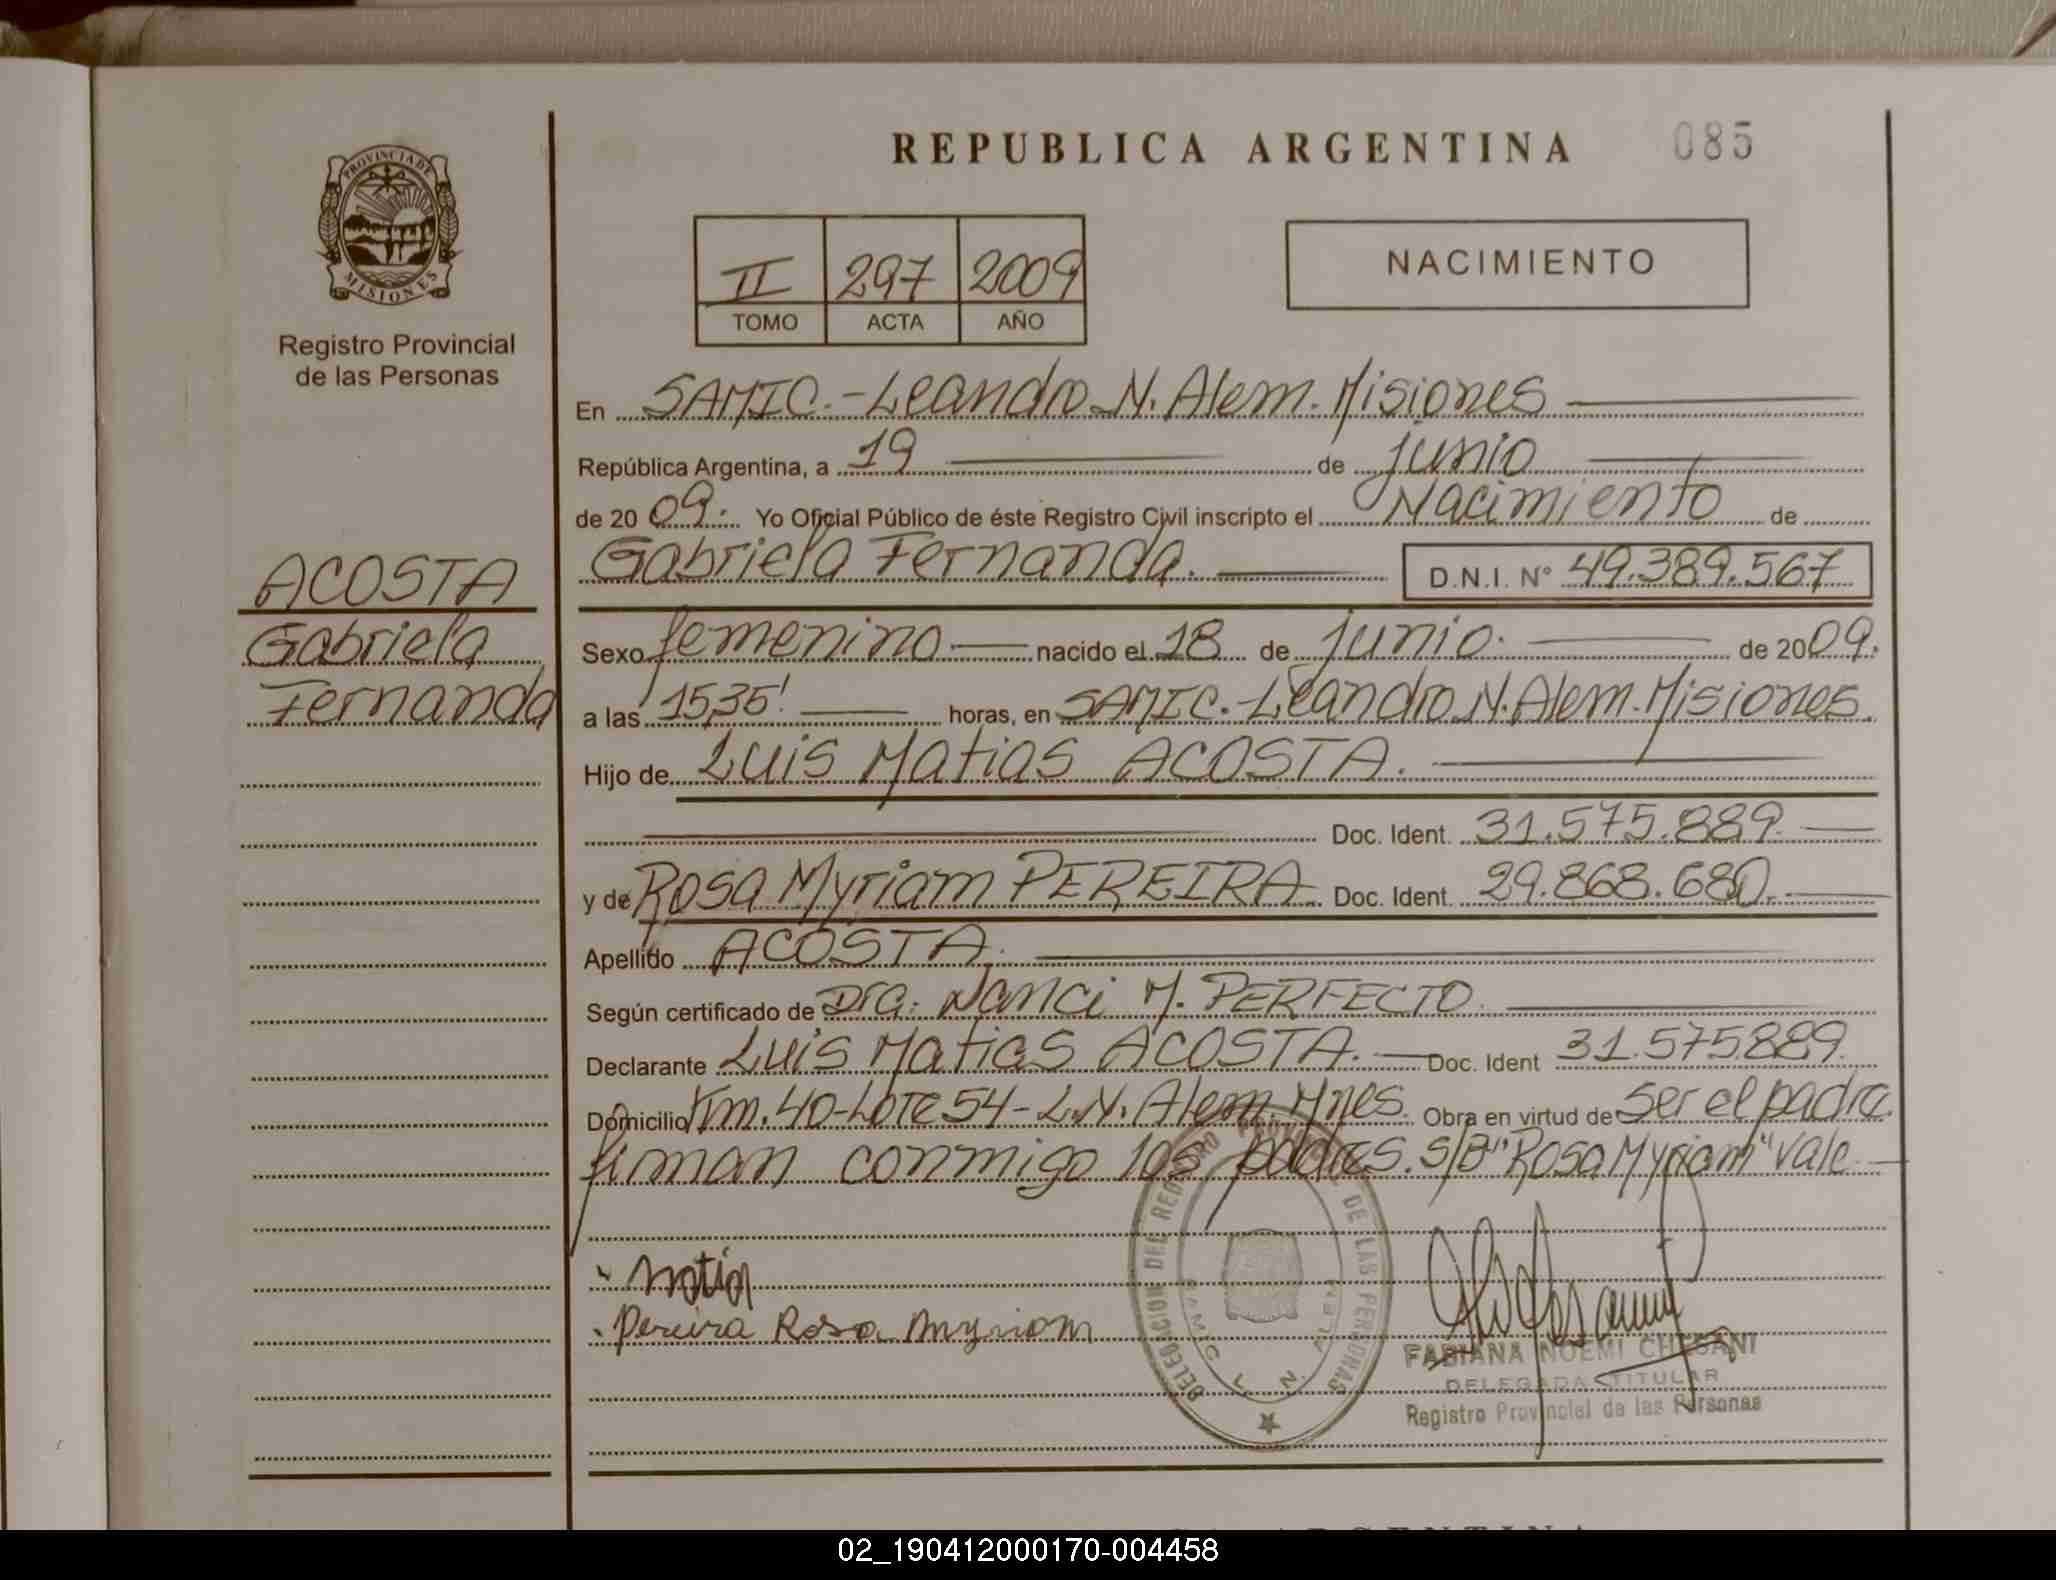 REPUBLICA ARGENTINA 085
PROVINCIA DE
MISIONES
Registro Provincial
de las Personas
II 297 2009
TOMO ACTA AÑO
NACIMIENTO
En SAMIC.-Leandro N. Alem. Misiones
República Argentina, a 19 de junio
de 2009. Yo Oficial Público de éste Registro Civil inscripto el Nacimiento de
Gabriela Fernanda. D.N.I. Nº 49.389.567
ACOSTA
Gabriela
Fernanda
Sexo femenino nacido el 18 de junio. de 2009.
a las 15,35' horas, en SAMIC.-Leandro N. Alem. Misiones.
Hijo de Luis Matias ACOSTA.
Doc. Ident. 31.575.889.
y de Rosa Myriam PEREIRA. Doc. Ident. 29.868.680.
Apellido ACOSTA.
Según certificado de Dra: Nanci M. PERFECTO.
Declarante Luis Matias ACOSTA. Doc. Ident 31.575889.
Domicilio Km. 40-Lote 54-L.N. Alem. Mnes. Obra en virtud de ser el padre.
firman conmigo los padres. S/B "Rosa Myriam" vale
Matia
Pereira Rosa Myriam
DELEGACION DEL REGISTRO DE LAS PERSONAS
SAMIC L N ALEM
FABIANA NOEMI CHESANI
DELEGADA TITULAR
Registro Provincial de las Personas
ARGENTINA
02_190412000170-004458